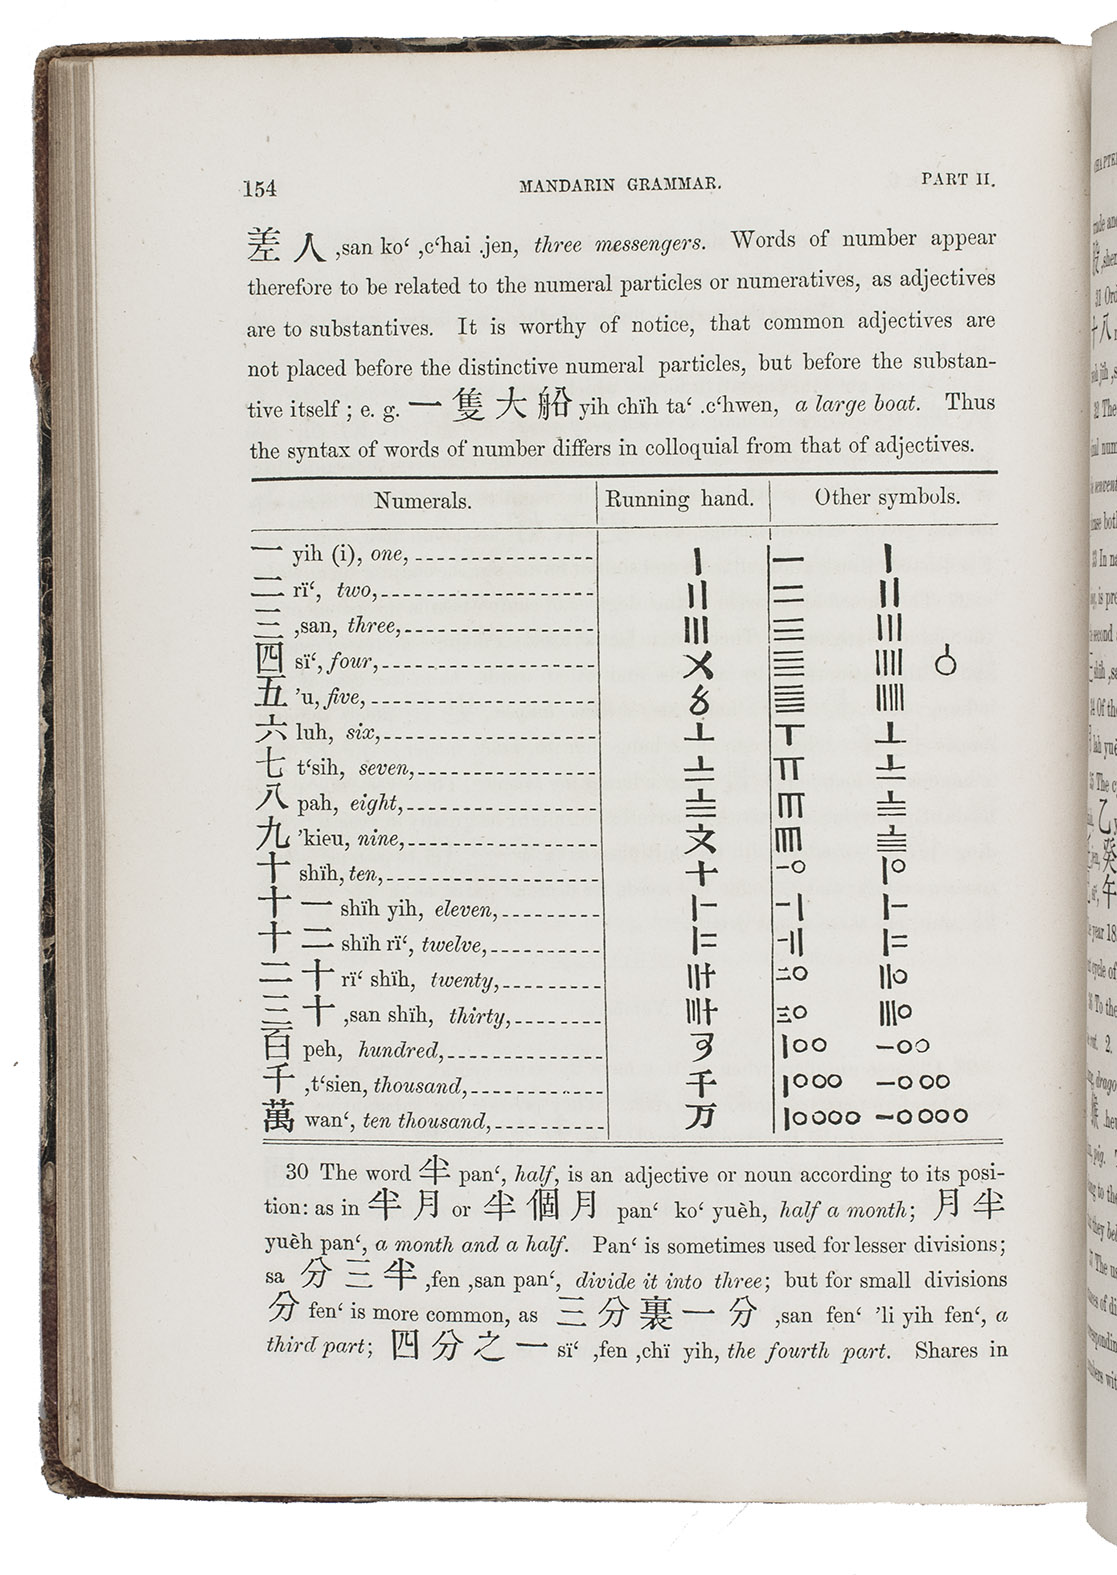 154 MANDARIN GRAMMAR. PART II.
差 人 ,san ko‘ ,c‘hai .jen, three messengers. Words of number appear
therefore to be related to the numeral particles or numeratives, as adjectives
are to substantives. It is worthy of notice, that common adjectives are
not placed before the distinctive numeral particles, but before the substan-
tive itself ; e. g. 一 隻 大 船 yih chïh ta‘ .c‘hwen, a large boat. Thus
the syntax of words of number differs in colloquial from that of adjectives.
Numerals. Running hand. Other symbols.
一 yih (i), one, 〡 一 〡
二 rï‘, two, 〢 二 〢
三 ,san, three, 〣 三 〣
四 sï‘, four, 〤 𝍬 𝍣
五 ’u, five, 〥 𝍭 𝍤
六 luh, six, 〦 𝍮 〦
七 t‘sih, seven, 〧 𝍯 〧
八 pah, eight, 〨 𝍰 〨
九 ’kieu, nine, 文 𝍱
十 shïh, ten, 十 一〇 〡〇
十 一 shïh yih, eleven, 〡一 一〡 〡一
十 二 shïh rï‘, twelve, 〡二 一〢 〡二
二 十 rï‘ shïh, twenty, 〢十 二〇 〢〇
三 十 ,san shïh, thirty, 〣十 三〇 〣〇
百 peh, hundred, 〡〇〇 一〇〇
千 ,t‘sien, thousand, 千 〡〇〇〇 一〇〇〇
萬 wan‘, ten thousand, 万 〡〇〇〇〇 一〇〇〇〇
30 The word 半 pan‘, half, is an adjective or noun according to its posi-
tion: as in 半 月 or 半 個 月 pan‘ ko‘ yuèh, half a month; 月 半
yuèh pan‘, a month and a half. Pan‘ is sometimes used for lesser divisions;
sa 分 三 半 ,fen ,san pan‘, divide it into three; but for small divisions
分 fen‘ is more common, as 三 分 裏 一 分 ,san fen‘ ’li yih fen‘, a
third part; 四 分 之 一 sï‘ ,fen ,chï yih, the fourth part. Shares in